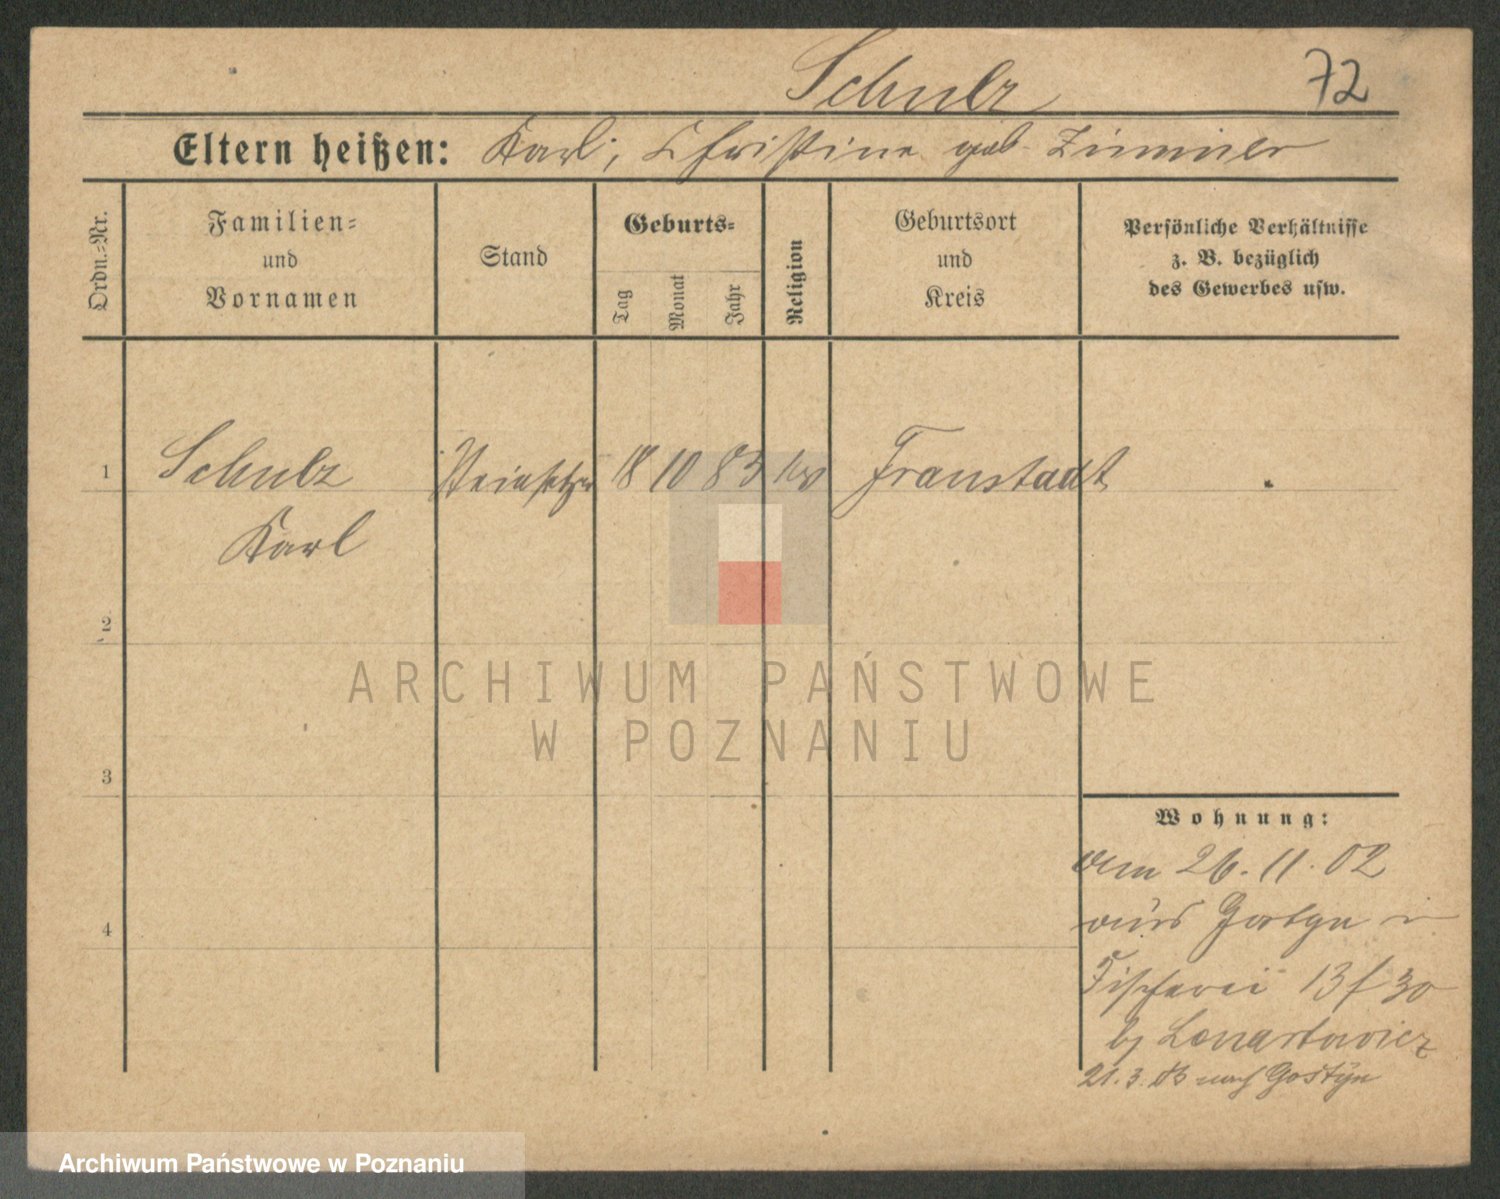 Schulz 72
Eltern heißen: Karl, Christine geb. Zimmer
Ordn.=Nr.
Familien=
und
Vornamen
Stand
Geburts=
Tag
Monat
Jahr
Religion
Geburtsort
und
Kreis
Persönliche Verhältnisse
z. B. bezüglich
des Gewerbes usw.
1 Schulz Steinsetzer 18 10 83 Fraustadt
Karl
2
3
4
Wohnung:
am 26. 11. 02
aus Gostyn in
Fischerei 13
b/ Lenartowicz
21. 3. 03 nach Gostyn
ARCHIWUM PAŃSTWOWE
W POZNANIU
Archiwum Państwowe w Poznaniu